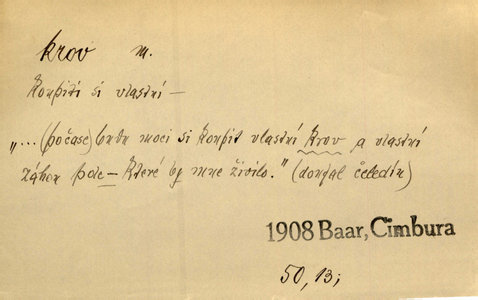 krov m.
Koupiti si vlastní —
„... (počase) budu moci si koupit vlastní krov a vlastní
záhon pole — které by mne živilo." (doufal čeledín)
1908 Baar, Cimbura
50, 13;